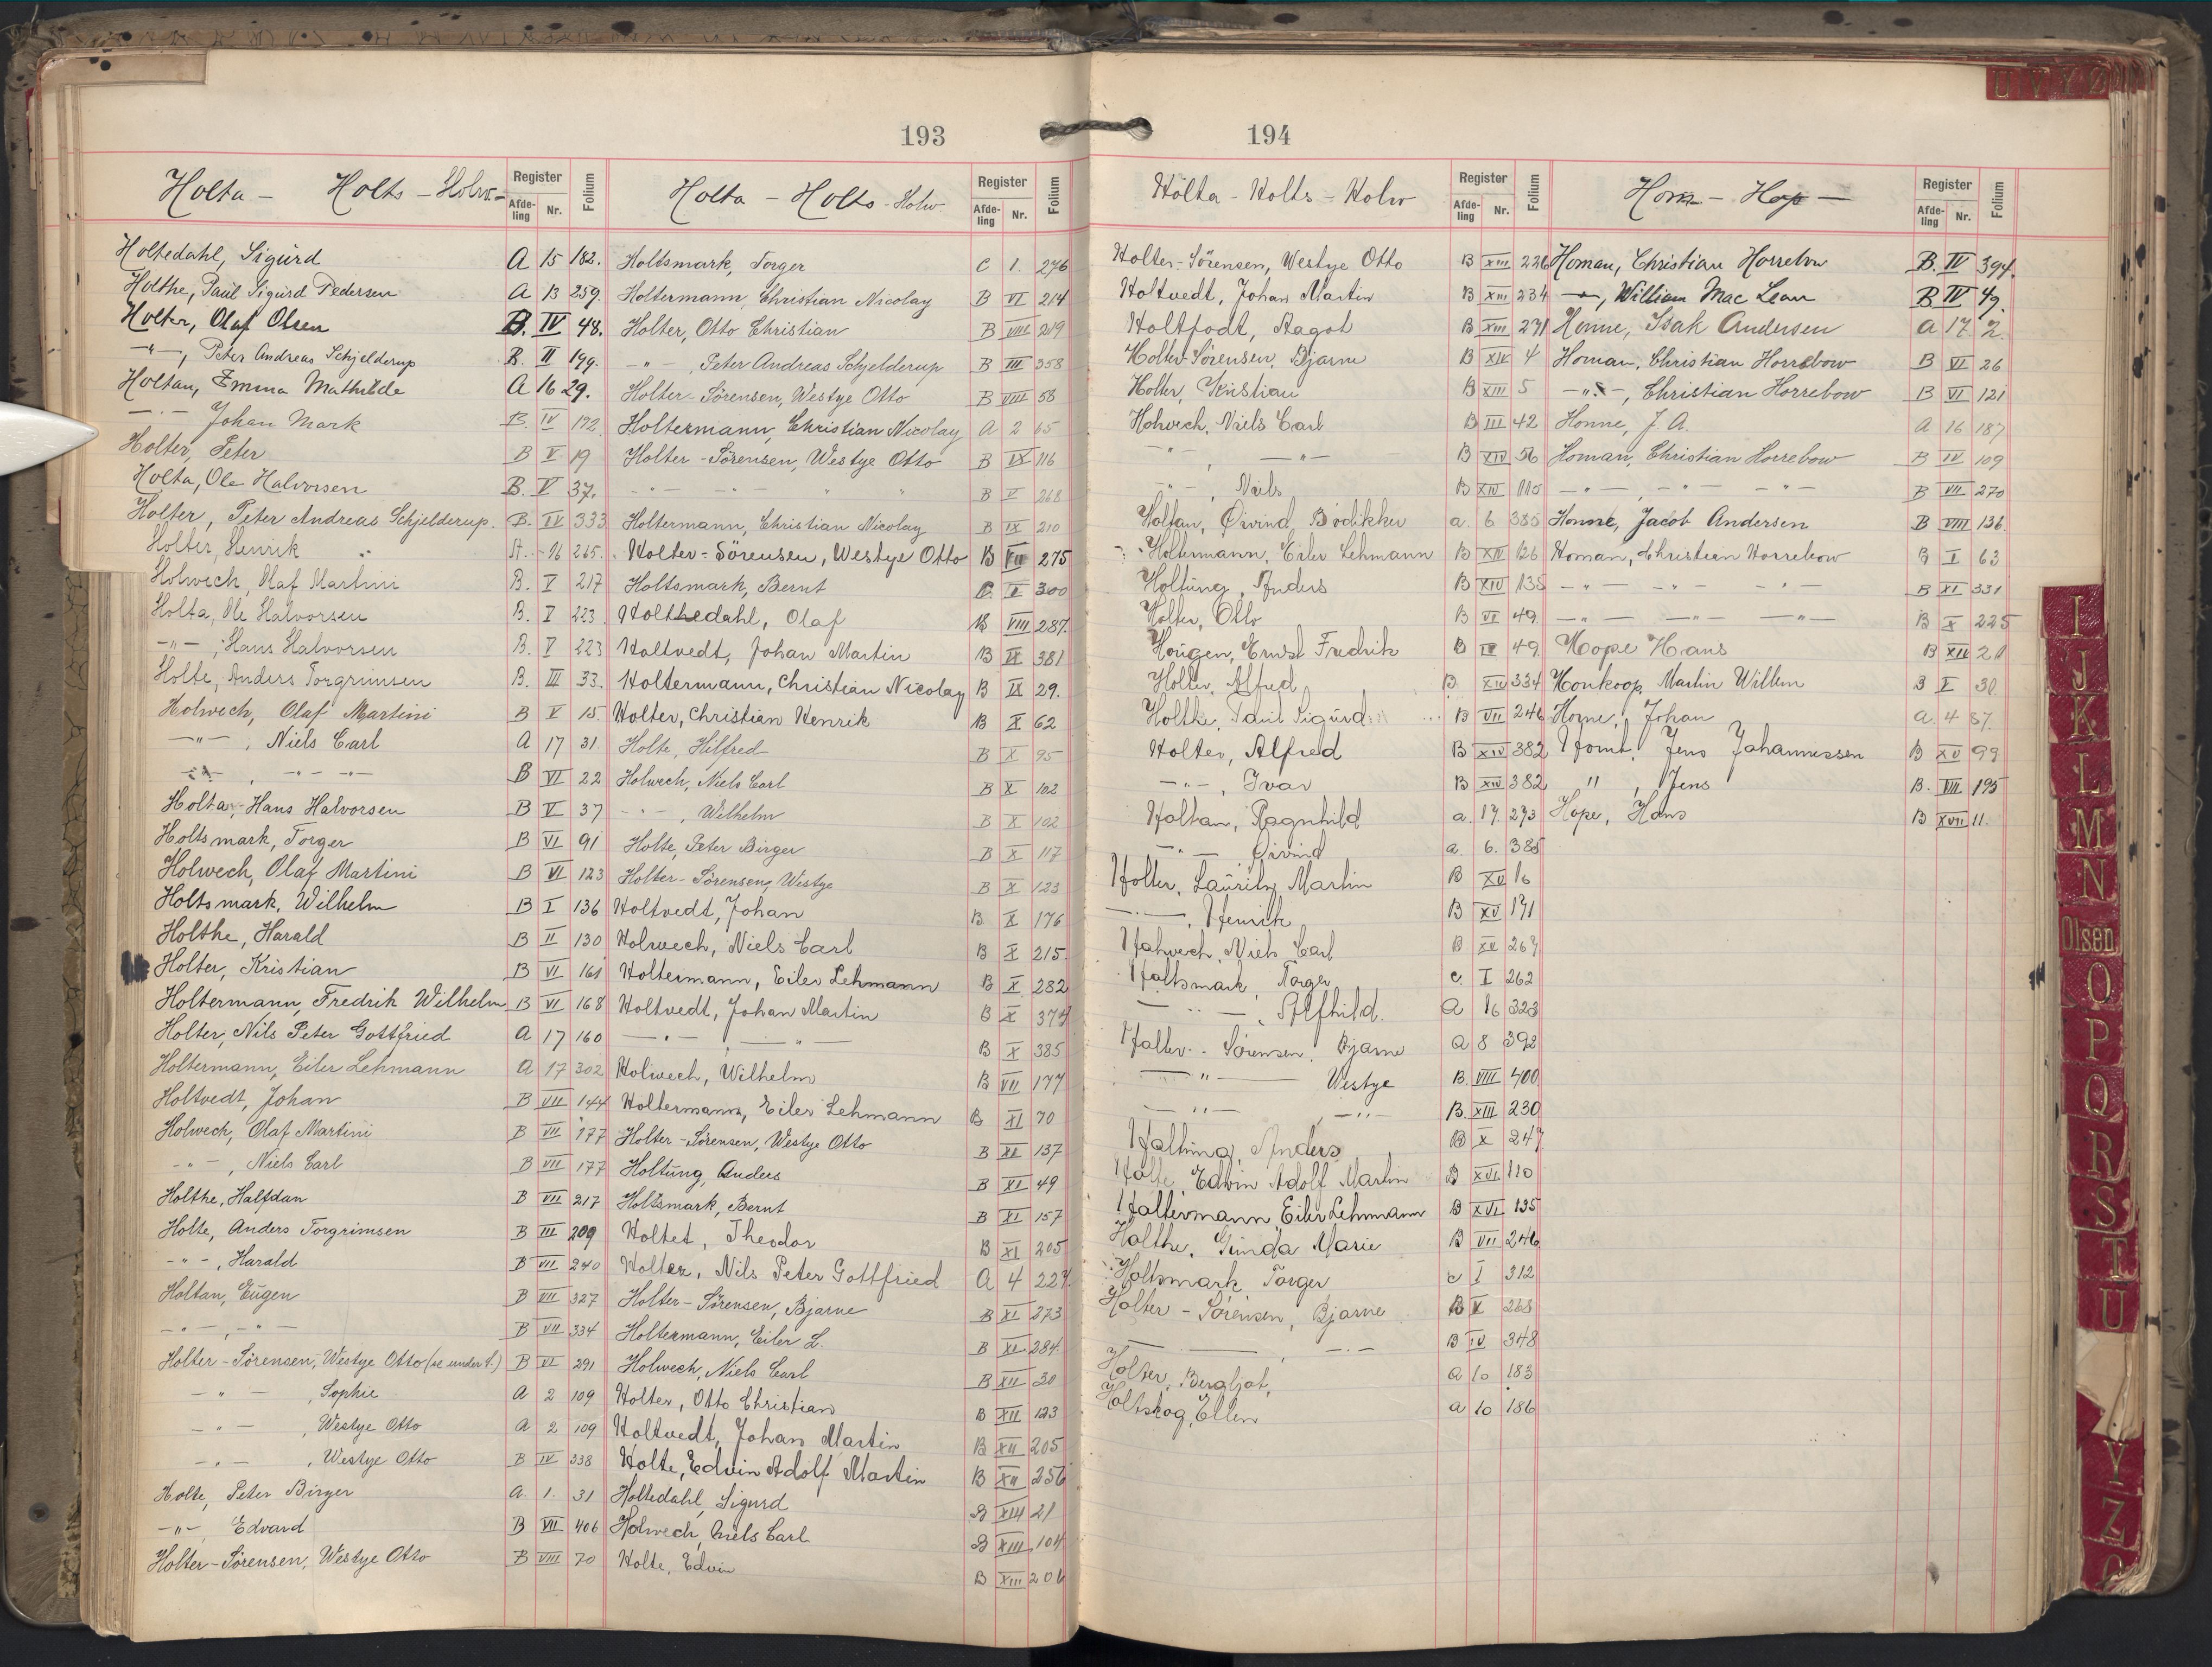 193
Holta - Holts - Holw. -
Register
Afde-ling Nr. Folium
Holtedahl, Sigurd A 15 182.
Holthe, Paul Sigurd Pedersen A 13 259.
Holter, Olaf Olsen B. IV 48.
-"-, Peter Andreas Schjelderup B. II 199.
Holtan, Emma Mathilde A 16 29.
-"- Johan Mark B. IV 172
Holter, Peter B V 19
Holta, Ole Halvorsen B. V 37.
Holter, Peter Andreas Schjelderup. B. IV 333
Holter, Henrik A. 16 265.
Holwech, Olaf Martini B. V 217
Holta, Ole Halvorsen B. V 223
-"-, Hans Halvorsen B. V 223
Holte, Anders Torgrimsen B. III 33.
Holwech, Olaf Martini B V 15.
-"-, Niels Carl A 17 31
-"-, -"- -"- B VI 22
Holta, Hans Halvorsen B V 37
Holtsmark, Torger B VI 91
Holwech, Olaf Martini B VI 123
Holtsmark, Wilhelm B I 136
Holthe, Harald B II 130
Holter, Kristian B VI 161
Holtermann, Fredrik Wilhelm B VI 168
Holter, Nils Peter Gottfried A 17 160
Holtermann, Eiler Lehmann A 17 302
Holtvedt, Johan B VII 144
Holwech, Olaf Martini B VII 177
-"-, Niels Carl B VII 177
Holthe, Halfdan B VII 217
Holte, Anders Torgrimsen B III 209
-"-, Harald B VII 240
Holtan, Eugen B VII 327
-"-, -"- B VII 334
Holter-Sörensen, Westye Otto (se under S.) B VI 291
-"-, Sophie A 2 109
-"-, Westye Otto A 2 109
-"-, Westye Otto B IV 338
Holte, Peter Birger A. 1. 31
-"-, Edvard B VII 406
Holter-Sörensen, Westye Otto B VIII 70
Holta - Holts - Holw
Register
Afde-ling Nr. Folium
Holtsmark, Torger C 1. 276
Holtermann, Christian Nicolay B VI 214
Holter, Otto Christian B VIII 219
-"-, Peter Andreas Schjelderup B III 358
Holter-Sörensen, Westye Otto B VIII 58
Holtermann, Christian Nicolay A 2 65
Holter-Sörensen, Westye Otto B IX 116
-"- -"- " " B V 268
Holtermann, Christian Nicolay B IX 210
Holter-Sörensen, Westye Otto B VII 275
Holtsmark, Bernt 300
Holthedahl, Olaf B VIII 287.
Holtvedt, Johan Martin B IX 381
Holtermann, Christian Nicolay B IX 29.
Holter, Christian Henrik B X 62
Holte, Hilfred B X 95
Holwech, Niels Carl B X 102
-"-, Wilhelm B X 102
Holte, Peter Birger B X 117
Holter-Sörensen, Westye B X 123
Holtvedt, Johan B X 176
Holwech, Niels Carl B X 215.
Holtermann, Eiler Lehmann B X 282
Holtvedt, Johan Martin B X 379
-"-, -"- B X 385
Holwech, Wilhelm B VII 177
Holtermann, Eiler Lehmann B XI 70
Holter-Sörensen, Westye Otto B XI 137
Holtung, Anders B XI 49
Holtsmark, Bernt B XI 157
Holtet, Theodor B XI 205
Holter, Nils Peter Gottfried A 4 227.
Holter-Sörensen, Bjarne B XI 273
Holtermann, Eiler L. B XI 284.
Holwech, Niels Carl B XII 30
Holter, Otto Christian B XII 123
Holtvedt, Johan Martin B XII 205
Holte, Edvin Adolf Martin B XII 256
Holtedahl, Sigurd B XIII 21
Holwech, Niels Carl B XIII 104
Holte, Edvin B XIII 201
194
Holta - Holts - Holw
Register
Afde-ling Nr. Folium
Holter-Sörensen, Westye Otto B XIII 226
Holtvedt, Johan Martin B XIII 234
Holtfodt, Aagot B XIII 271
Holter-Sörensen, Bjarne B XIV 4
Holter, Kristian B XIII 5
Holwech, Niels Carl B III 42
-"-, -"- B XIV 56
-"-, Niels B XIV 115
Holtan, Øivind Bödikker a. 6 385
Holtermann, Eiler Lehmann B XIV 126
Holtung, Anders B XIV 135
Holter, Otto B VI 49.
Hougen, Ernst Fredrik B IV 49.
Holter, Alfred B XIV 334
Holthe, Paul Sigurd B VII 246
Holter, Alfred B XIV 382
-"-, Ivar B XIV 382
Holtan, Ragnhild a. 17. 293
-"- Øivind a. 6. 385
Holter, Lauritz Martin B XV 16
-"-, Henrik B XV 171
Holwech, Niels Carl B XV 267
Holtsmark, Torger C. I 262
-"-, Alfhild. A 16 323
Holter-Sörensen, Bjarne A 8 392
-"- Westye B. VIII 400
-"-, -"- B. XIII 230
Holtung, Anders B X 247
Holte, Edvin Adolf Martin B XVI 110
Holtermann Eiler Lehmann B XVI 135
Holthe, Gunda Marie B VII 246
Holtsmark, Torger c I 312
Holter-Sörensen, Bjarne B V 268
-"-, -"- B IV 348
Holter, Bergljot, a 10 183
Holtskog, Ellen a 10 186
Hom - Hop -
Register
Afde-ling Nr. Folium
Homan, Christian Horrebow B. IV 394.
-"-, William Mac Lean B IV 49.
Honne, Isak Andersen A 17. 2.
Homan, Christian Horrebow B VI 26
-"-, Christian Horrebow B VI 121
Honne, J. A. A 16 187
Homan, Christian Horrebow B IV 109
-"-, -"- -"- B VII 270
Honne, Jacob Andersen B VIII 136.
Homan, Christian Horrebow B I 63
-"- -"- -"- B XI 331
-"- -"- -"- B X 225
Hope Hans B XII 21
Honkoop, Martin Willem B X 30.
Horne, Johan A. 4 87.
Homt, Jens Johannessen B XV 99
", Jens B. VII 195
Hope, Hans B XVII 11.
U V Y Z Ø
I
J
K
L
M
N
Olsen
O
P
Q
R
S
T
U
Y
Z